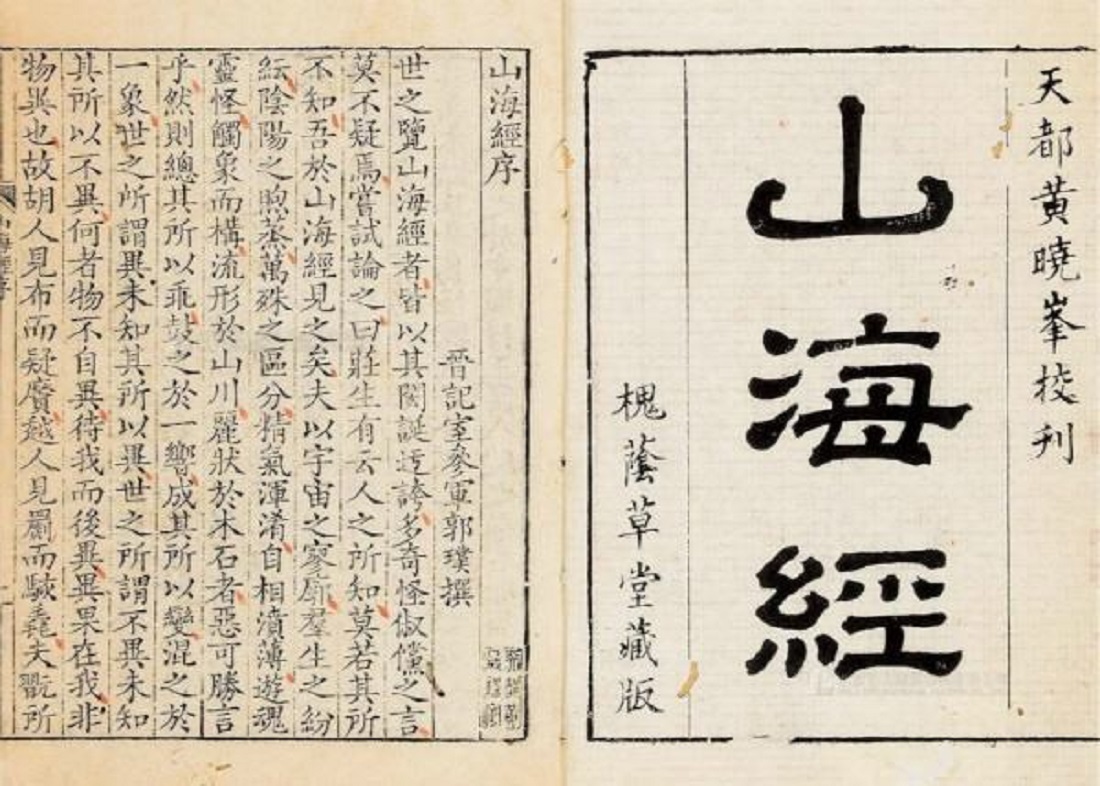 天都黃曉峯校刋
山海經
槐蔭草堂藏版
山海經序
晉記室參軍郭璞撰
世之覽山海經者皆以其閎誕迂誇多奇怪俶儻之言
莫不疑焉嘗試論之曰莊生有云人之所知莫若其所
不知吾於山海經見之矣夫以宇宙之寥廓羣生之紛
紜陰陽之煦蒸萬殊之區分精氣渾淆自相濆薄遊魂
靈怪觸象而構流形於山川麗狀於木石者惡可勝言
乎然則總其所以乖鼓之於一響成其所以變混之於
一象世之所謂異未知其所以異世之所謂不異未知
其所以不異何者物不自異待我而後異異果在我非
物異也故胡人見布而疑黂越人見罽而駭毳夫翫所
山海經序